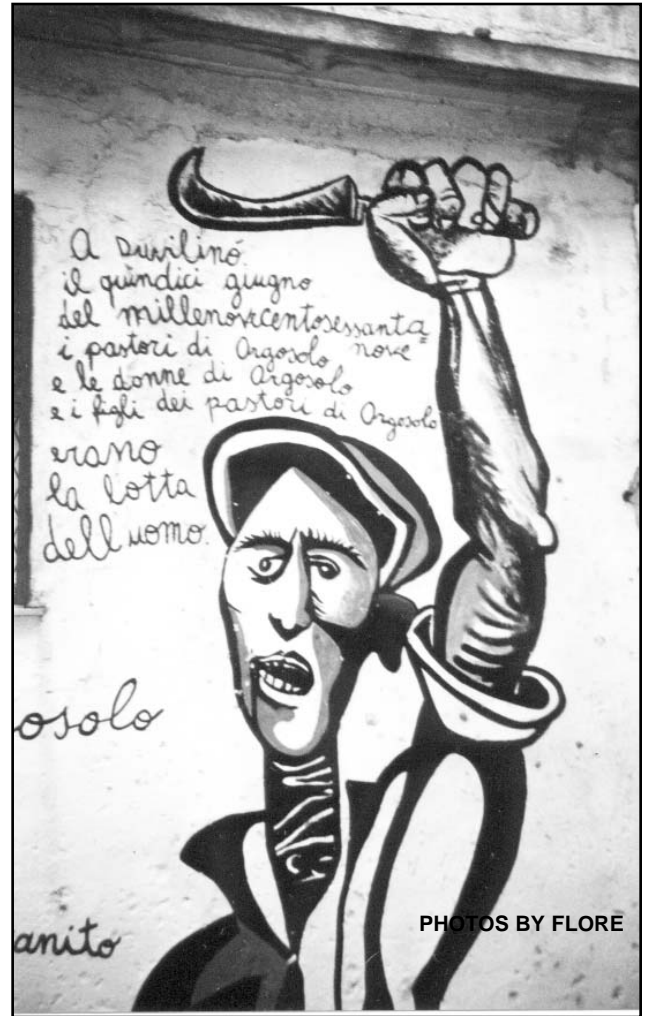 A Duvilinó
il quindici giugno
del millenovecentosessanta=
nove
i pastori di Orgosolo
e le donne di Orgosolo
e i figli dei pastori di Orgosolo
erano
la lotta
dell'uomo.
osolo
anito
PHOTOS BY FLORE